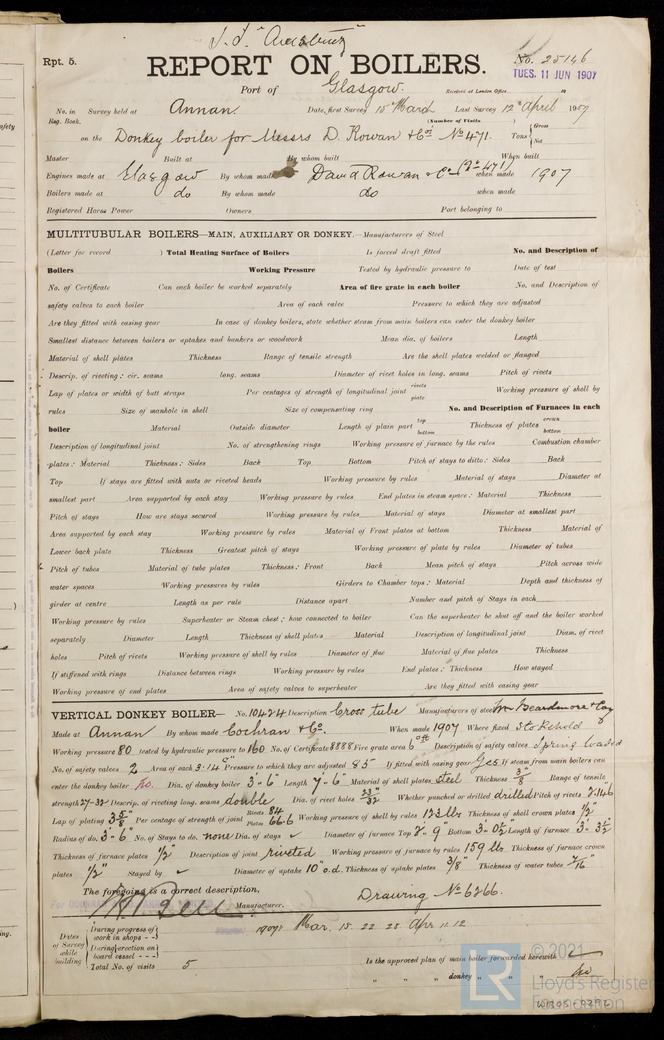 S.S. "Ardsbury"
Rpt. 5.
No. 25146
REPORT ON BOILERS.
TUES. 11 JUN 1907
Port of Glasgow. Received at London Office 19
No. in Reg. Book. Survey held at Annan. Date, first Survey 15th March Last Survey 12th April 1907
(Number of Visits )
on the Donkey boiler for Messrs D. Rowan & Co's No 471. Tons { Gross Net
Master Built at By whom built When built
Engines made at Glasgow By whom made David Rowan & Co (No 471) when made 1907
Boilers made at do By whom made do when made
Registered Horse Power Owners Port belonging to
MULTITUBULAR BOILERS—MAIN, AUXILIARY OR DONKEY.—Manufacturers of Steel
(Letter for record ) Total Heating Surface of Boilers Is forced draft fitted No. and Description of
Boilers Working Pressure Tested by hydraulic pressure to Date of test
No. of Certificate Can each boiler be worked separately Area of fire grate in each boiler No. and Description of
safety valves to each boiler Area of each valve Pressure to which they are adjusted
Are they fitted with easing gear In case of donkey boilers, state whether steam from main boilers can enter the donkey boiler
Smallest distance between boilers or uptakes and bunkers or woodwork Mean dia. of boilers Length
Material of shell plates Thickness Range of tensile strength Are the shell plates welded or flanged
Descrip. of riveting: cir. seams long. seams Diameter of rivet holes in long. seams Pitch of rivets
Lap of plates or width of butt straps Per centages of strength of longitudinal joint rivets plate Working pressure of shell by
rules Size of manhole in shell Size of compensating ring No. and Description of Furnaces in each
boiler Material Outside diameter Length of plain part top bottom Thickness of plates crown bottom
Description of longitudinal joint No. of strengthening rings Working pressure of furnace by the rules Combustion chamber
plates: Material Thickness: Sides Back Top Bottom Pitch of stays to ditto: Sides Back
Top If stays are fitted with nuts or riveted heads Working pressure by rules Material of stays Diameter at
smallest part Area supported by each stay Working pressure by rules End plates in steam space: Material Thickness
Pitch of stays How are stays secured Working pressure by rules Material of stays Diameter at smallest part
Area supported by each stay Working pressure by rules Material of Front plates at bottom Thickness Material of
Lower back plate Thickness Greatest pitch of stays Working pressure of plate by rules Diameter of tubes
Pitch of tubes Material of tube plates Thickness: Front Back Mean pitch of stays Pitch across wide
water spaces Working pressures by rules Girders to Chamber tops: Material Depth and thickness of
girder at centre Length as per rule Distance apart Number and pitch of Stays in each
Working pressure by rules Superheater or Steam chest; how connected to boiler Can the superheater be shut off and the boiler worked
separately Diameter Length Thickness of shell plates Material Description of longitudinal joint Diam. of rivet
holes Pitch of rivets Working pressure of shell by rules Diameter of flue Material of flue plates Thickness
If stiffened with rings Distance between rings Working pressure by rules End plates: Thickness How stayed
Working pressure of end plates Area of safety valves to superheater Are they fitted with easing gear
VERTICAL DONKEY BOILER— No. 10424 Description Cross tube Manufacturers of steel Wm Beardmore & Coy
Made at Annan By whom made Cochran & Co. When made 1907 Where fixed Stokehold
Working pressure 80 tested by hydraulic pressure to 160 No. of Certificate 8888 Fire grate area 6 Description of safety valves Spring loaded
No. of safety valves 2 Area of each 3.14" Pressure to which they are adjusted 85 If fitted with easing gear Yes. If steam from main boilers can
enter the donkey boiler No. Dia. of donkey boiler 3'-6" Length 7'-6" Material of shell plates Steel Thickness 3/8" Range of tensile
strength 27-32 Descrip. of riveting long. seams double Dia. of rivet holes 23/32" Whether punched or drilled drilled Pitch of rivets 2.146
Lap of plating 3 5/8" Per centage of strength of joint Rivets 84 Plates 66.6 Working pressure of shell by rules 123 lbs Thickness of shell crown plates 1/2"
Radius of do. 3'-6" No. of Stays to do. none Dia. of stays ✓ Diameter of furnace Top 2-9 Bottom 3-0 1/2 Length of furnace 3'-3 1/2
Thickness of furnace plates 1/2" Description of joint riveted Working pressure of furnace by rules 159 lbs Thickness of furnace crown
plates 1/2" Stayed by ✓ Diameter of uptake 10" o.d. Thickness of uptake plates 3/8" Thickness of water tubes 7/16"
The foregoing is a correct description,
Manufacturer.
Drawing No 6266.
Dates of Survey while building { During progress of work in shops - - 1907 Mar. 15. 22. 28. Apr 11. 12
During erection on board vessel - - -
Total No. of visits 5
Is the approved plan of main boiler forwarded herewith ✓
" " " donkey " " " No
© 2021
LR
Lloyd's Register
Foundation
W1205-0292